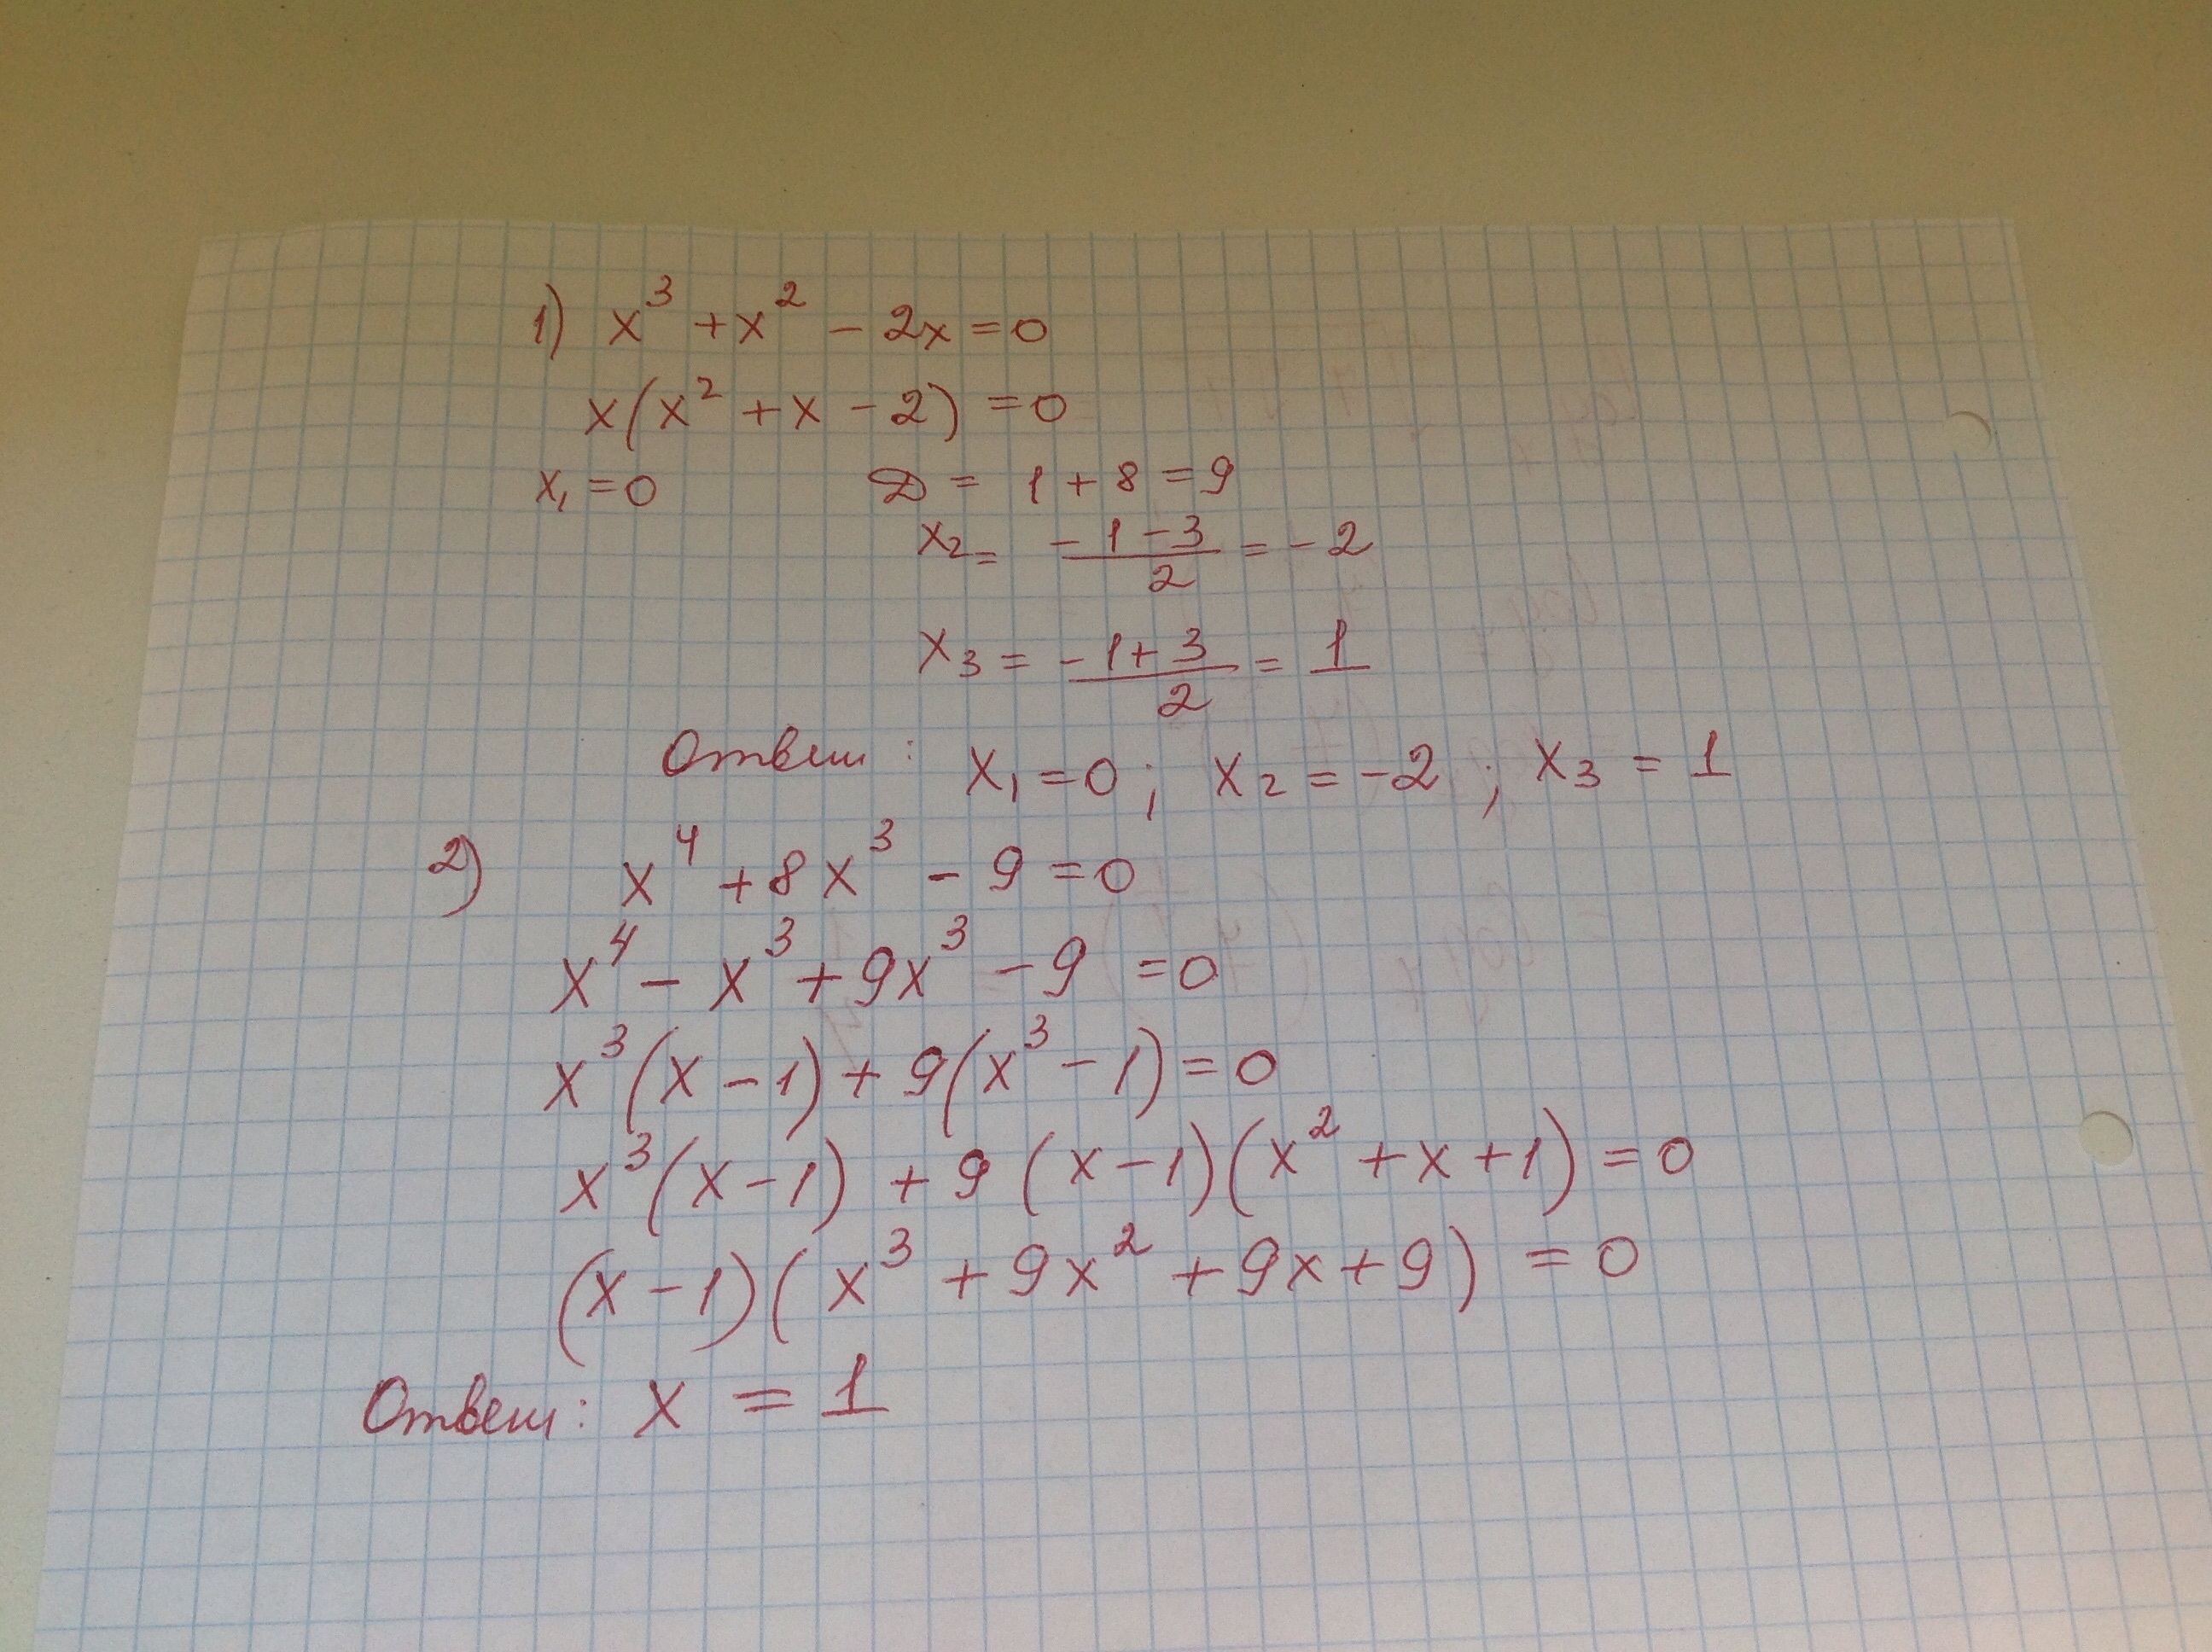 1) x³ + x² - 2x = 0
x(x² + x - 2) = 0
x₁ = 0 D = 1 + 8 = 9
x₂ = (-1-3)/2 = -2
x₃ = (-1+3)/2 = 1
Ответ: x₁ = 0; x₂ = -2; x₃ = 1
2) x⁴ + 8x³ - 9 = 0
x⁴ - x³ + 9x³ - 9 = 0
x³(x-1) + 9(x³-1) = 0
x³(x-1) + 9(x-1)(x² + x + 1) = 0
(x-1)(x³ + 9x² + 9x + 9) = 0
Ответ: x = 1